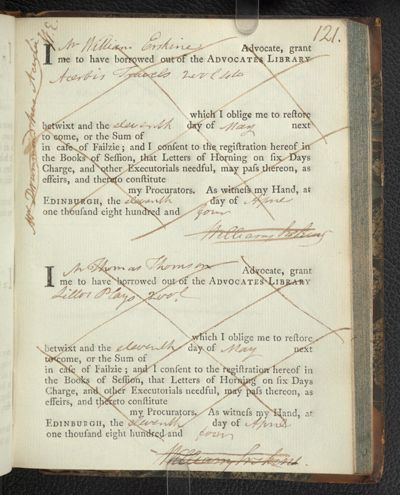 121.
I Mr William Erskine Advocate, grant
me to have borrowed out of the ADVOCATES LIBRARY
Acerbis Travels 2 vol. 4to
which I oblige me to reſtore
betwixt and the eleventh day of May next
to come, or the Sum of
in caſe of Failzie; and I conſent to the regiſtration hereof in
the Books of Seſſion, that Letters of Horning on ſix Days
Charge, and other Executorials needful, may paſs thereon, as
effeirs, and thereto conſtitute
my Procurators. As witneſs my Hand, at
EDINBURGH, the eleventh day of April
one thouſand eight hundred and four
William Erskine
I Mr Thomas Thomson Advocate, grant
me to have borrowed out of the ADVOCATES LIBRARY
Lillos Plays 2 vol.
which I oblige me to reſtore
betwixt and the eleventh day of May next
to come, or the Sum of
in caſe of Failzie; and I conſent to the regiſtration hereof in
the Books of Seſſion, that Letters of Horning on ſix Days
Charge, and other Executorials needful, may paſs thereon, as
effeirs, and thereto conſtitute
my Procurators. As witneſs my Hand, at
EDINBURGH, the eleventh day of April
one thouſand eight hundred and four
William Erskine.